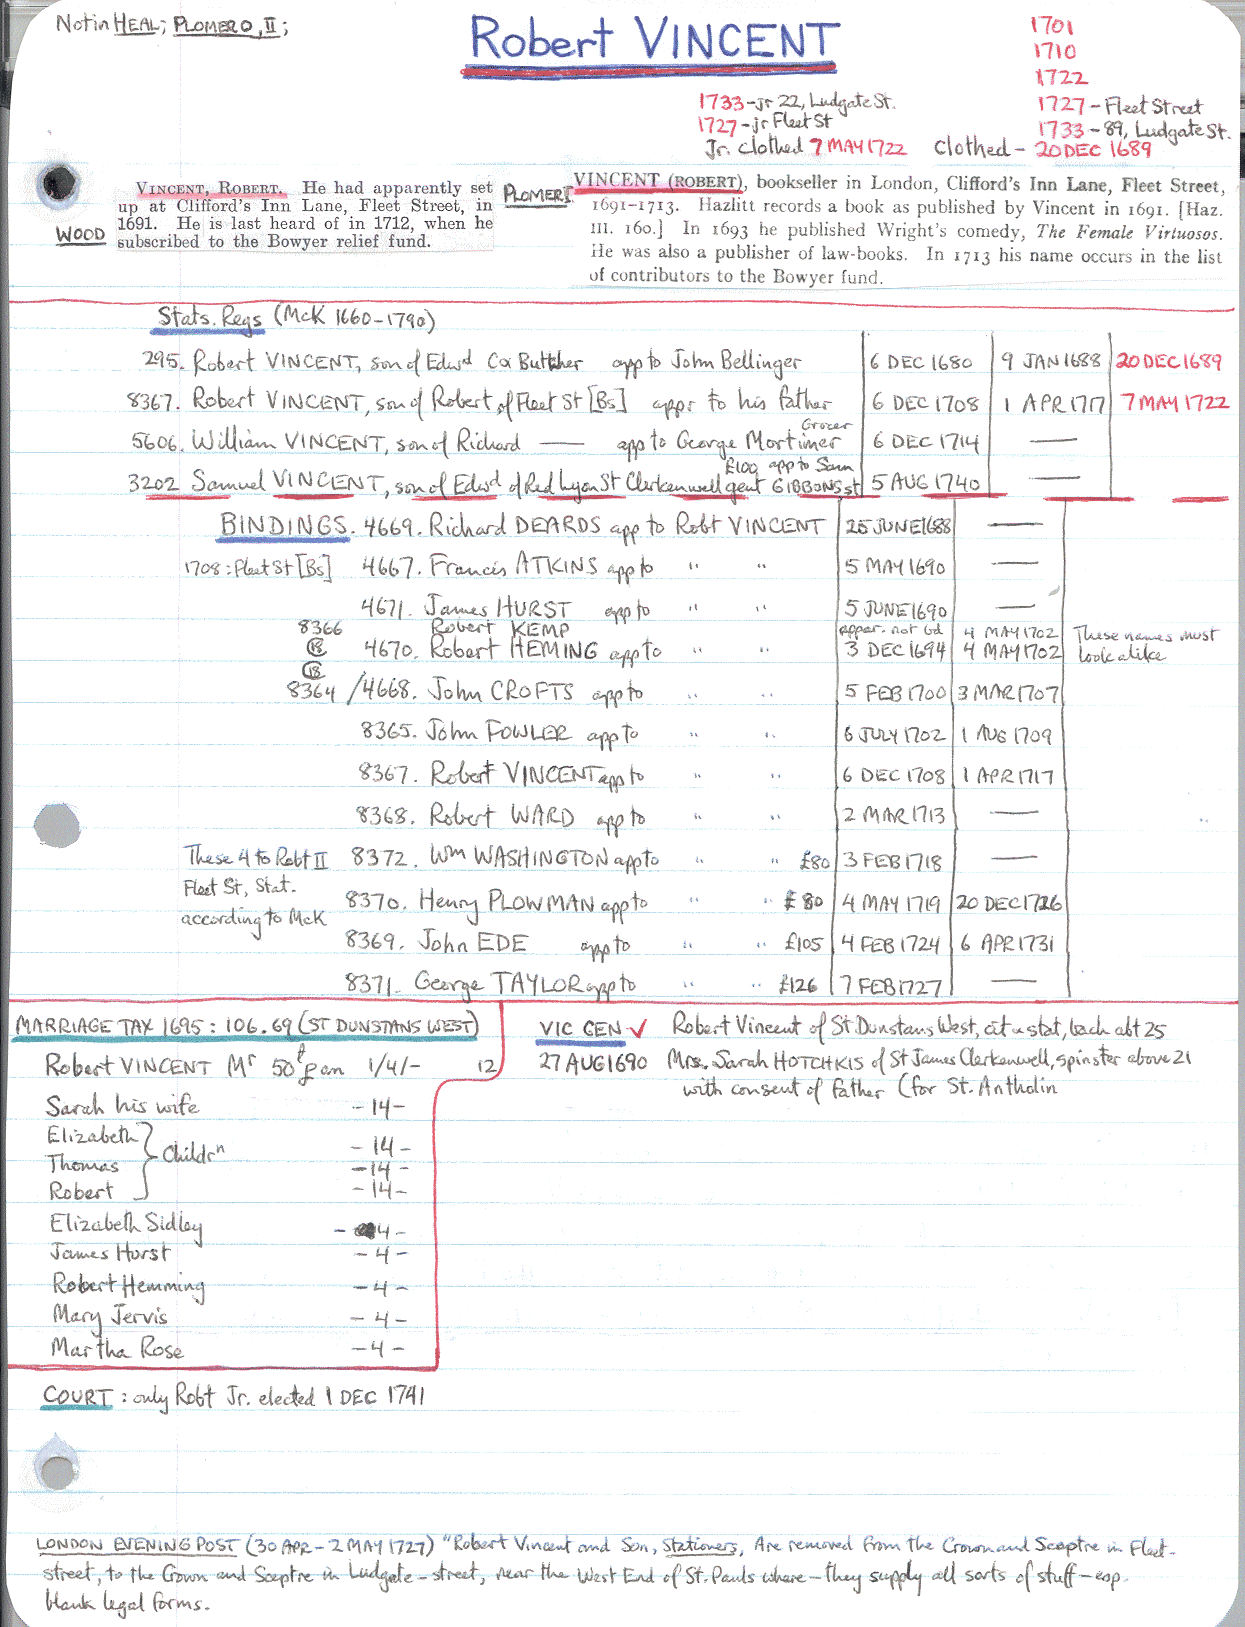 Not in HEAL; PLOMER O, II;
Robert VINCENT
1701
1710
1722
1733-jr 22, Ludgate St. 1727 - Fleet Street
1727-jr Fleet St 1733 - 89, Ludgate St.
Jr. clothed 7 MAY 1722 clothed - 20 DEC 1689
VINCENT, ROBERT. He had apparently set
up at Clifford's Inn Lane, Fleet Street, in
1691. He is last heard of in 1712, when he
subscribed to the Bowyer relief fund.
WOOD
PLOMER I
VINCENT (ROBERT), bookseller in London, Clifford's Inn Lane, Fleet Street,
1691-1713. Hazlitt records a book as published by Vincent in 1691. [Haz.
III. 160.] In 1693 he published Wright's comedy, The Female Virtuosos.
He was also a publisher of law-books. In 1713 his name occurs in the list
of contributors to the Bowyer fund.
Stats. Regs (McK 1660-1790)
295. Robert VINCENT, son of Edwd Cox Butcher app to John Bellinger 6 DEC 1680 9 JAN 1688 20 DEC 1689
8367. Robert VINCENT, son of Robert of Fleet St [Bs] appr to his father 6 DEC 1708 1 APR 1717 7 MAY 1722
5606. William VINCENT, son of Richard — app to George Mortimer Grocer 6 DEC 1714 —
3202 Samuel VINCENT, son of Edwd of Red Lyon St Clerkenwell gent £100 app to Sam GIBBONS st 5 AUG 1740 —
BINDINGS. 4669. Richard DEARDS app to Robt VINCENT 25 JUNE 1688 —
1708: Fleet St [Bs] 4667. Francis ATKINS app to " " 5 MAY 1690 —
4671. James HURST app to " " 5 JUNE 1690 —
8366 Robert KEMP appar. not bd 4 MAY 1702 These names must
18 4670. Robert HEMING app to " " 3 DEC 1694 4 MAY 1702 look alike
18
8364 /4668. John CROFTS app to " " 5 FEB 1700 3 MAR 1707
8365. John FOWLER app to " " 6 JULY 1702 1 AUG 1709
8367. Robert VINCENT app to " " 6 DEC 1708 1 APR 1717
8368. Robert WARD app to " " 2 MAR 1713 —
These 4 to Robt II 8372. Wm WASHINGTON app to " " £80 3 FEB 1718 —
Fleet St, Stat.
according to McK 8370. Henry PLOWMAN app to " " £80 4 MAY 1719 20 DEC 1726
8369. John EDE app to " " £105 4 FEB 1724 6 APR 1731
8371. George TAYLOR app to " " £126 7 FEB 1727 —
MARRIAGE TAX 1695: 106.69 (ST DUNSTANS WEST)
Robert VINCENT Mr 50£ p an 1/4/- 12
Sarah his wife -14-
Elizabeth -14-
Thomas Childrn -14-
Robert -14-
Elizabeth Sidley -4-
James Horst -4-
Robert Hemming -4-
Mary Jervis -4-
Martha Rose -4-
VIC GEN ✓ Robert Vincent of St Dunstans West, cit & stat, bach abt 25
27 AUG 1690 Mrs. Sarah HOTCHKIS of St James Clerkenwell, spinster above 21
with consent of father (for St. Antholin
COURT: only Robt Jr. elected 1 DEC 1741
LONDON EVENING POST (30 APR - 2 MAY 1727) "Robert Vincent and Son, Stationers, Are removed from the Crown and Sceptre in Fleet-
street, to the Crown and Sceptre in Ludgate-street, near the West End of St. Pauls where - they supply all sorts of stuff - esp.
blank legal forms.